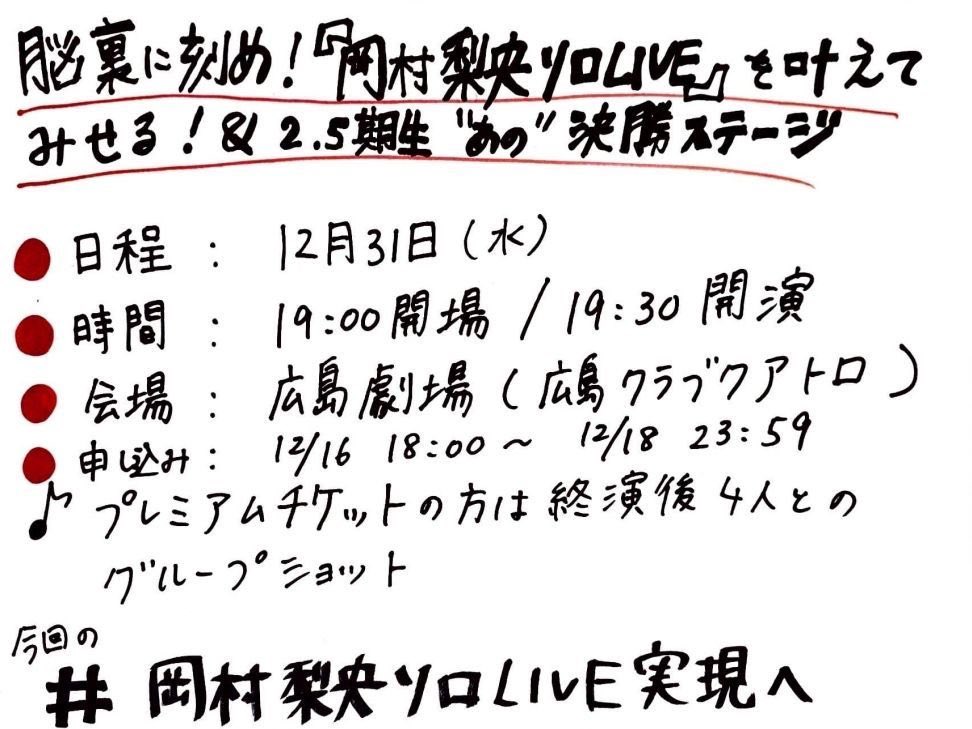 脳裏に刻め！『岡村梨央ソロLIVE』を叶えて
みせる！& 2.5期生 "あの" 決勝ステージ
● 日程 : 12月31日(水)
● 時間 : 19:00開場 / 19:30 開演
● 会場 : 広島劇場 (広島クラブクアトロ)
● 申し込み : 12/16 18:00～ 12/18 23:59
♪ プレミアムチケットの方は終演後4人との
グループショット
今回の
# 岡村梨央ソロLIVE実現へ